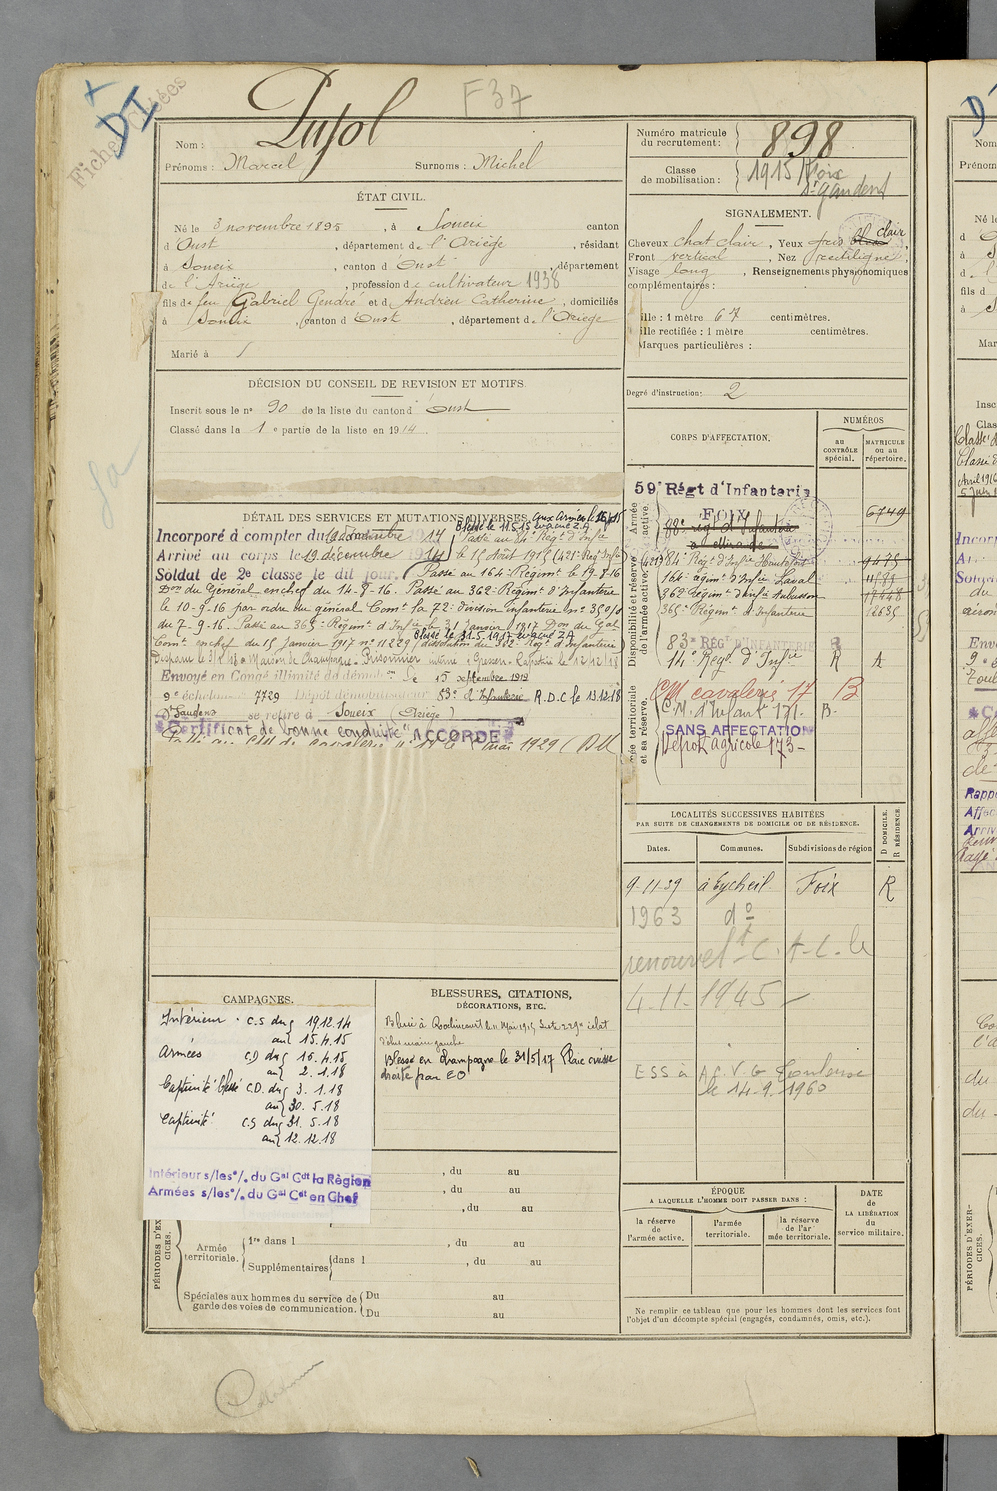 Fiches
DI
F37
Nom : Pujol
Prénoms : Marcel Surnoms : Michel
Numéro matricule
du recrutement : 898
Classe
de mobilisation : 1915 Foix
St Gaudens
ÉTAT CIVIL.
Né le 3 novembre 1895, à Soueix canton
d'Oust, département de l'Ariège, résidant
à Soueix, canton d'Oust, département
de l'Ariège, profession de cultivateur 1938
fils de feu Gabriel Gendre et de Andrieu Catherine, domiciliés
à Soueix, canton d'Oust, département de l'Ariège
Marié à
SIGNALEMENT.
Cheveux chat clair, Yeux gris clair
Front vertical, Nez rectiligne,
Visage long, Renseignements physionomiques
complémentaires :
ille : 1 mètre 67 centimètres.
ille rectifiée : 1 mètre centimètres.
Marques particulières :
Degré d'instruction : 2
DÉCISION DU CONSEIL DE REVISION ET MOTIFS.
Inscrit sous le n° 90 de la liste du canton d'Oust
Classé dans la 1e partie de la liste en 1914.
DÉTAIL DES SERVICES ET MUTATIONS DIVERSES.
Blessé le 11.5.15 évacué Z.A.
Incorporé à compter du 19 décembre 1914
Passé au 84e Régt d'Infie
Arrivé au corps le 19 décembre 1914
le 15 Août 1915 (421e Reg Infie)
Soldat de 2e classe le dit jour.
Passé au 164e Régimt le 19-8-16
Don du Général en chef du 14-8-16. Passé au 362e Régimt d'Infanterie
le 10-9-16 par ordre du général Comt la 72e division infanterie n°
du 7-9-16. Passé au 365e Régimt d'Infie le 31 janvier 1917 Don du Gal
Blessé le 31.5.1917 évacué Z.A
Comt en chef du 15 Janvier 1917 n° 11229 (dissolution du 362e Régt d'Infanterie)
Disparu le Maison de Champagne - Prisonnier interné à Giessen - Rapatrié le 12/12/18
Envoyé en Congé illimité de démobon le 15 septembre 1919
9e échelon 7729 Dépôt démobilisateur 83e d'Infanterie R.D.C le 13.12.18
St Gaudens se retire à Soueix (Ariège)
Certificat de bonne conduite "ACCORDE"
CORPS D'AFFECTATION.
NUMÉROS
au
CONTRÔLE
spécial.
MATRICULE
ou au
répertoire.
Armée
active.
Disponibilité et réserve
de l'armée active.
ée territoriale
et sa réserve.
59e Régt d'Infanterie
FOIX
6749
88e régt d'Infanterie
à Mirande
(421e) 84e Régt d'Infie 9475
164e régimt d'Infie Laval
362e Régimt d'Infie
365e Régimt d'Infanterie 12635
83e REGt D'INFANTERIE
14e Régt d'Infie R A
CM cavalerie 17 B
C.M. d'Infant 171- B-
SANS AFFECTATION
Dépôt agricole 173-
LOCALITÉS SUCCESSIVES HABITÉES
PAR SUITE DE CHANGEMENTS DE DOMICILE OU DE RÉSIDENCE.
Dates. Communes. Subdivisions de région
D DOMICILE.
R RÉSIDENCE.
9-11-39 à Eycheil Foix R
1963 do
renouvelt C. A-C. le
4-11-1945
ESS à A.C.V.G Toulouse
le 14-9-1960
CAMPAGNES.
Intérieur - C.S du 19.12.14
au 15.4.15
Armées C.D du 16.4.15
au 2.1.18
Captivité Blessé C.D. du 3.1.18
au 30.5.18
Captivité C.S du 31.5.18
au 12.12.18
Intérieur s/les o/. du Gal Cdt la Région
Armées s/les o/. du Gal Cdt en Chef
BLESSURES, CITATIONS,
DÉCORATIONS, ETC.
Blessé à Roclincourt le 11 Mai 1915 éclat
d'obus main gauche
Blessé en Champagne le 31/5/17 Plaie cuisse
droite par EO
, du au
, du au
, du au
PÉRIODES D'EXER-
CICES.
Armée
territoriale.
1re dans l , du au
Supplémentaires dans l , du au
Spéciales aux hommes du service de
garde des voies de communication.
Du au
Du au
ÉPOQUE
A LAQUELLE L'HOMME DOIT PASSER DANS :
la réserve
de
l'armée active.
l'armée
territoriale.
la réserve
de l'ar
mée territoriale.
DATE
de
LA LIBÉRATION
du
service militaire.
Ne remplir ce tableau que pour les hommes dont les services font
l'objet d'un décompte spécial (engagés, condamnés, omis, etc.).